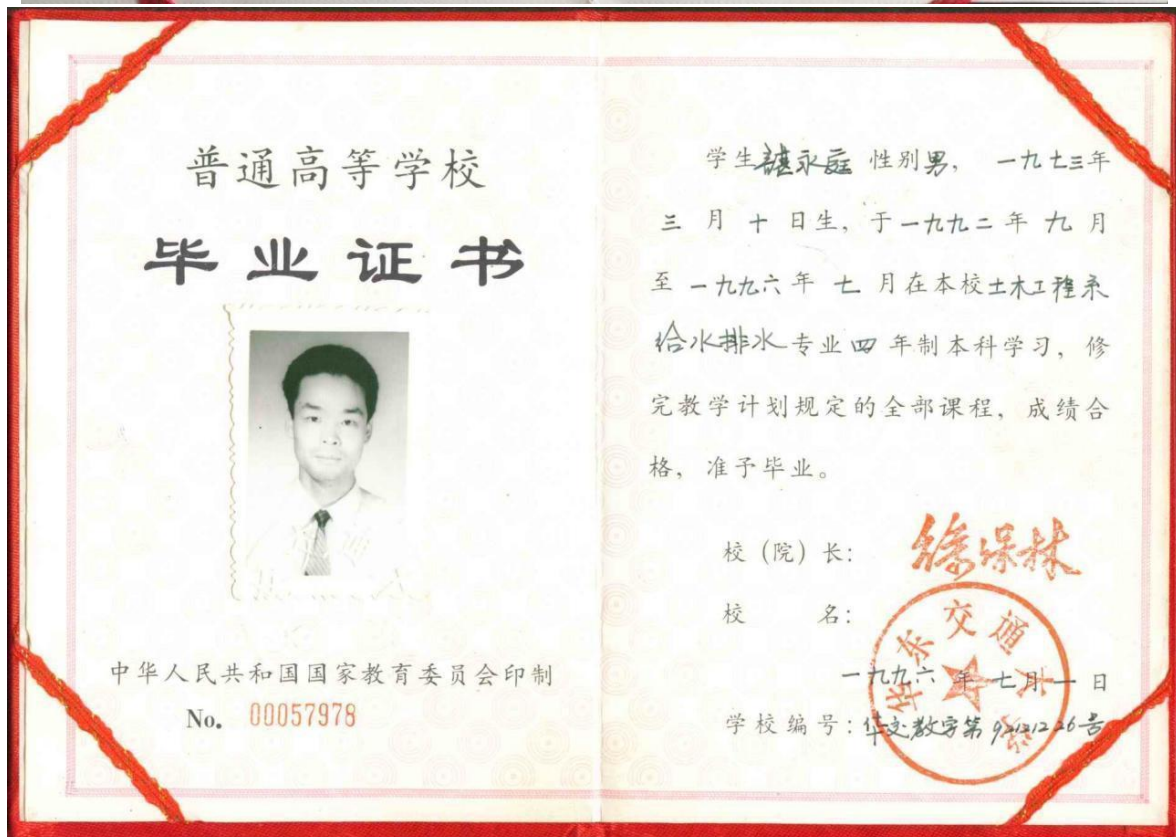 普通高等学校
毕业证书
中华人民共和国国家教育委员会印制
No. 00057978
学生谌永庭 性别男， 一九七三年
三月十日生，于一九九二年九月
至一九九六年七月在本校土木工程系
给水排水专业四年制本科学习，修
完教学计划规定的全部课程，成绩合
格，准予毕业。
校（院）长：
校 名：
华东交通大学
一九九六年七月一日
学校编号：华交教字第